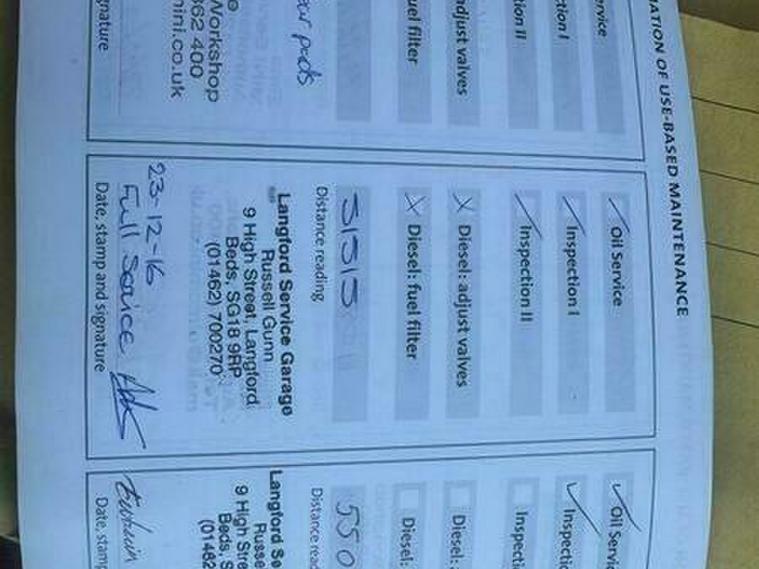 ATION OF USE-BASED MAINTENANCE
ervice
ction I
tion II
adjust valves
uel filter
Workshop
062 400
ini.co.uk
gnature
Oil Service
Inspection I
Inspection II
Diesel: adjust valves
Diesel: fuel filter
51515
Distance reading
Langford Service Garage
Russell Gunn
9 High Street, Langford
Beds, SG18 9RP
(01462) 700270
23-12-16
Full Service
Date, stamp and signature
Oil Servic
Inspectio
Inspecti
Diesel: a
Diesel:
550
Distance read
Langford Se
Russe
9 High Stre
Beds, S
(01462
Date, stamp